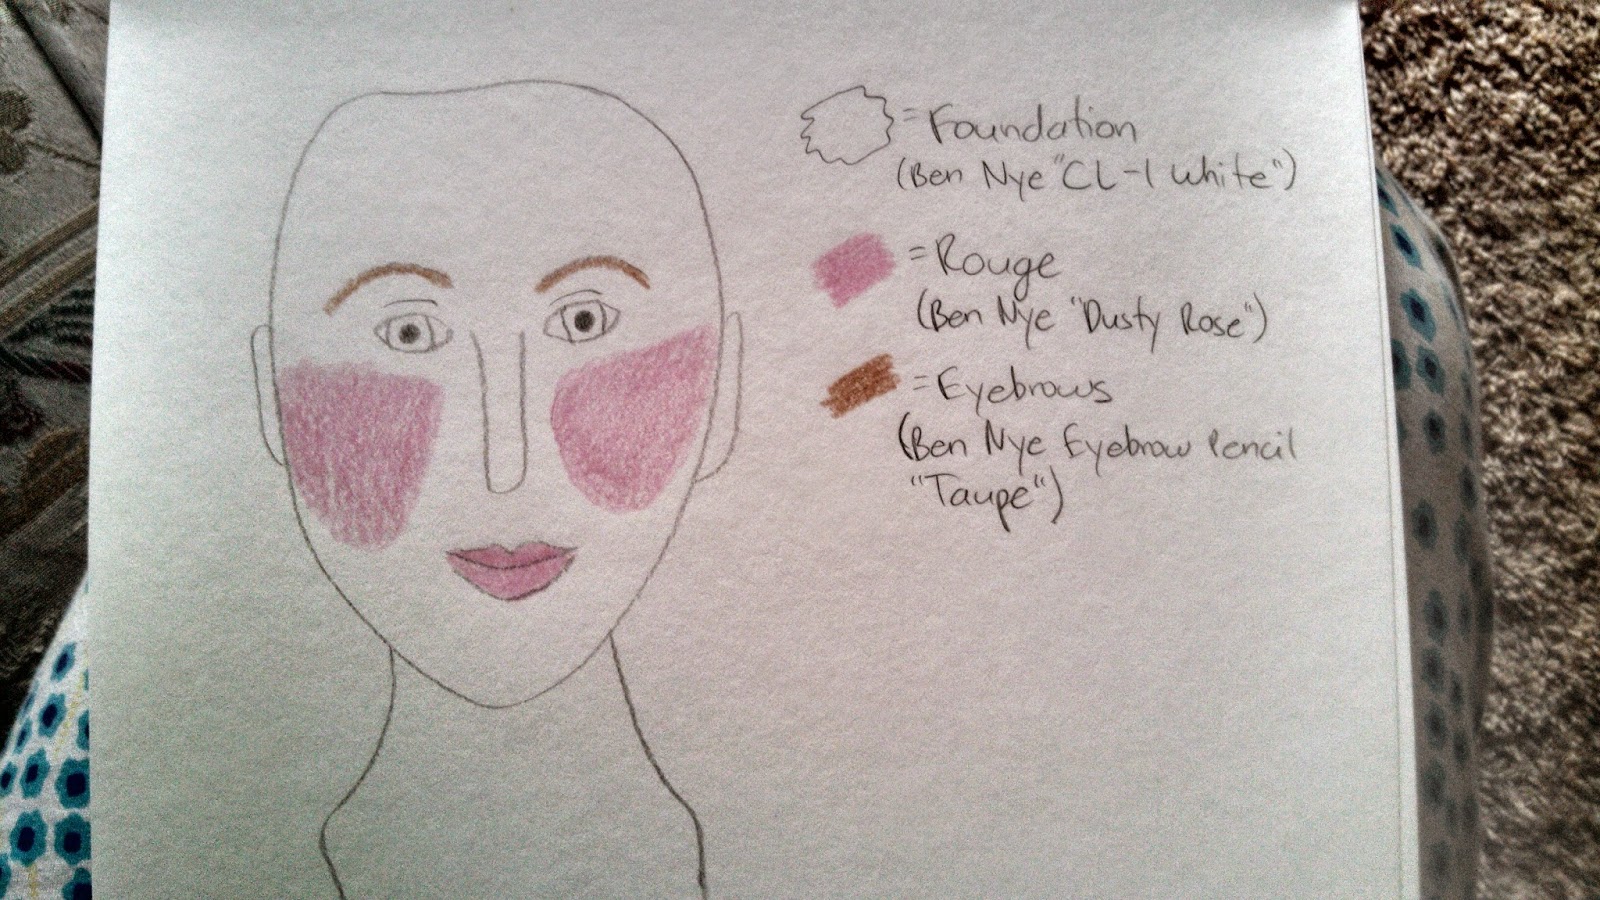 = Foundation
(Ben Nye "CL-1 White")
= Rouge
(Ben Nye "Dusty Rose")
= Eyebrows
(Ben Nye Eyebrow Pencil
"Taupe")